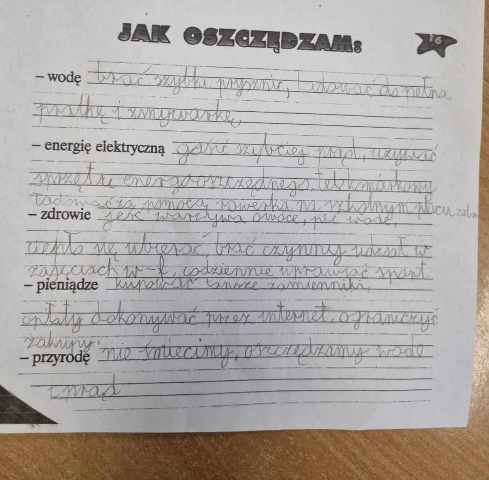 JAK OSZCZĘDZAM:
– wodę brać szybki prysznic, ładować do pełna
pralkę i zmywarkę,
– energię elektryczną gasić szybciej prąd, używać
sprzętu energooszczędnego,
ładować za pomocą rowerka na szkolnym placu
– zdrowie jeść warzywa owoce, pić wodę,
ciepło się ubierać, brać czynny udział w
zajęciach w-f, codziennie uprawiać sport
– pieniądze kupować tańsze zamienniki,
opłaty dokonywać przez internet, ograniczyć
zakupy.
– przyrodę nie śmiecimy, oszczędzamy wodę
i prąd